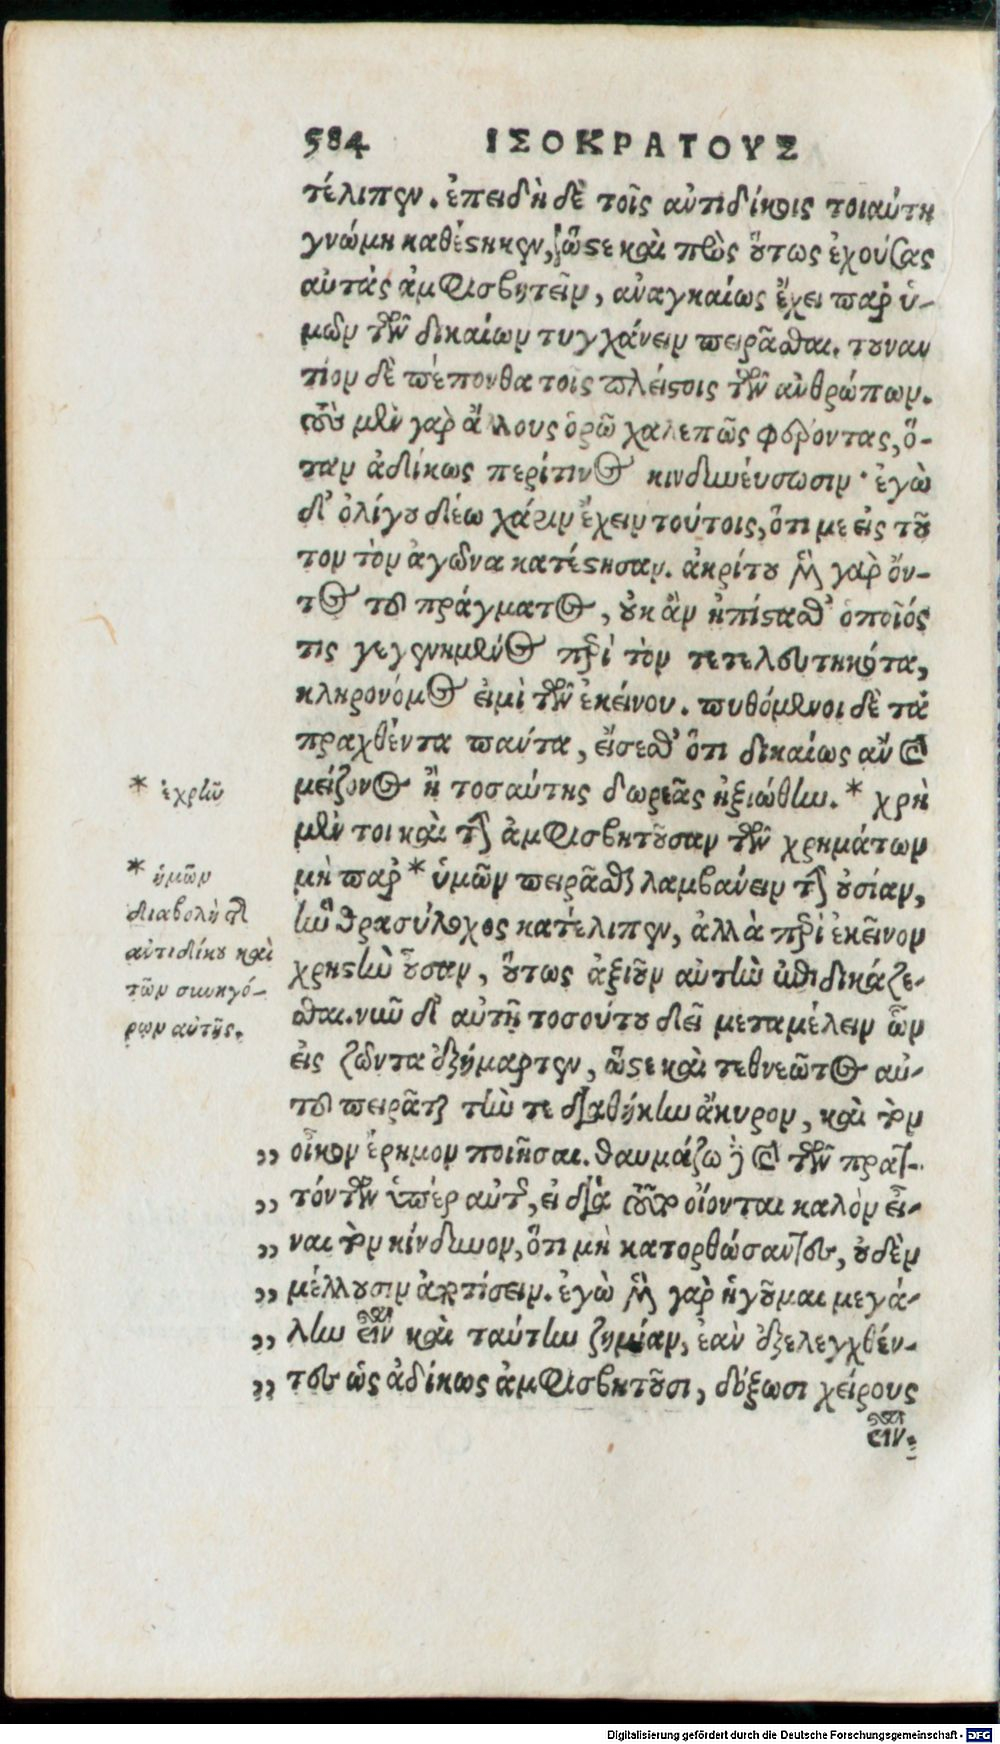 584 ΙΣΟΚΡΑΤΟΥΣ
τέλιπεν. ἐπειδὴ δὲ τοῖς ἀντιδίκοις τοιαύτη
γνώμη καθέστηκεν, ὥστε καὶ πρὸς οὕτως ἐχούσας
αὐτὰς ἀμφισβητεῖν, ἀναγκαίως ἔχει παρ' ὑ-
μῶν τῶν δικαίων τυγχάνειν πειρᾶσθαι. τοὐναν
τίον δὲ πέπονθα τοῖς πλείστοις τῶν ἀνθρώπων.
τοὺς μὲν γὰρ ἄλλους ὁρῶ χαλεπῶς φέροντας, ὅ-
ταν ἀδίκως περίτινος κινδυνεύσωσιν· ἐγὼ
δ' ὀλίγου δέω χάριν ἔχειν τούτοις, ὅτι με εἰς τοῦ
τον τὸν ἀγῶνα κατέστησαν. ἀκρίτου μὲν γὰρ ὄν-
τος τοῦ πράγματος, οὐκ ἂν ἠπίστασθ' ὁποῖός
τις γεγενημένος περὶ τὸν τετελευτηκότα,
κληρονόμος εἰμὶ τῶν ἐκείνου. πυθόμενοι δὲ τὰ
πραχθέντα πάντα, εἴσεσθ' ὅτι δικαίως ἂν καὶ
μείζονος ἢ τοσαύτης δωρεᾶς ἠξιώθην. * χρὴ
μέν τοι καὶ τὴν ἀμφισβητοῦσαν τῶν χρημάτων
μὴ παρ' * ὑμῶν πειρᾶσθαι λαμβάνειν τὴν οὐσίαν,
ἣν Θρασύλοχος κατέλιπεν, ἀλλὰ περὶ ἐκεῖνον
χρηστὴν οὖσαν, οὕτως ἀξιοῦν αὐτὴν ἐπιδικάζε-
σθαι. νῦν δ' αὐτῇ τοσούτου δεῖ μεταμέλειν ὧν
εἰς ζῶντα ἐξήμαρτεν, ὥστε καὶ τεθνεῶτος αὐ-
τοῦ πειρᾶται τήν τε διαθήκην ἄκυρον, καὶ τὸν
,, οἶκον ἔρημον ποιῆσαι. θαυμάζω δὲ καὶ τῶν πρατ-
,, τόντων ὑπὲρ αὐτῆς, εἰ διὰ τοῦτο οἴονται καλὸν εἶ-
,, ναι τὸν κίνδυνον, ὅτι μὴ κατορθώσαντες, οὐδὲν
,, μέλλουσιν ἀποτίσειν. ἐγὼ μὲν γὰρ ἡγοῦμαι μεγά-
,, λην εἶναι καὶ ταύτην ζημίαν, ἐὰν ἐξελεγχθέν-
,, τες ὡς ἀδίκως ἀμφισβητοῦσι, δόξωσι χείρους
εἶναι.
* ἐχρῆν
* ἡμῶν
διαβολὴ τοῦ
ἀντιδίκου καὶ
τῶν συνηγό-
ρων αὐτῆς.
Digitalisierung gefördert durch die Deutsche Forschungsgemeinschaft - DFG